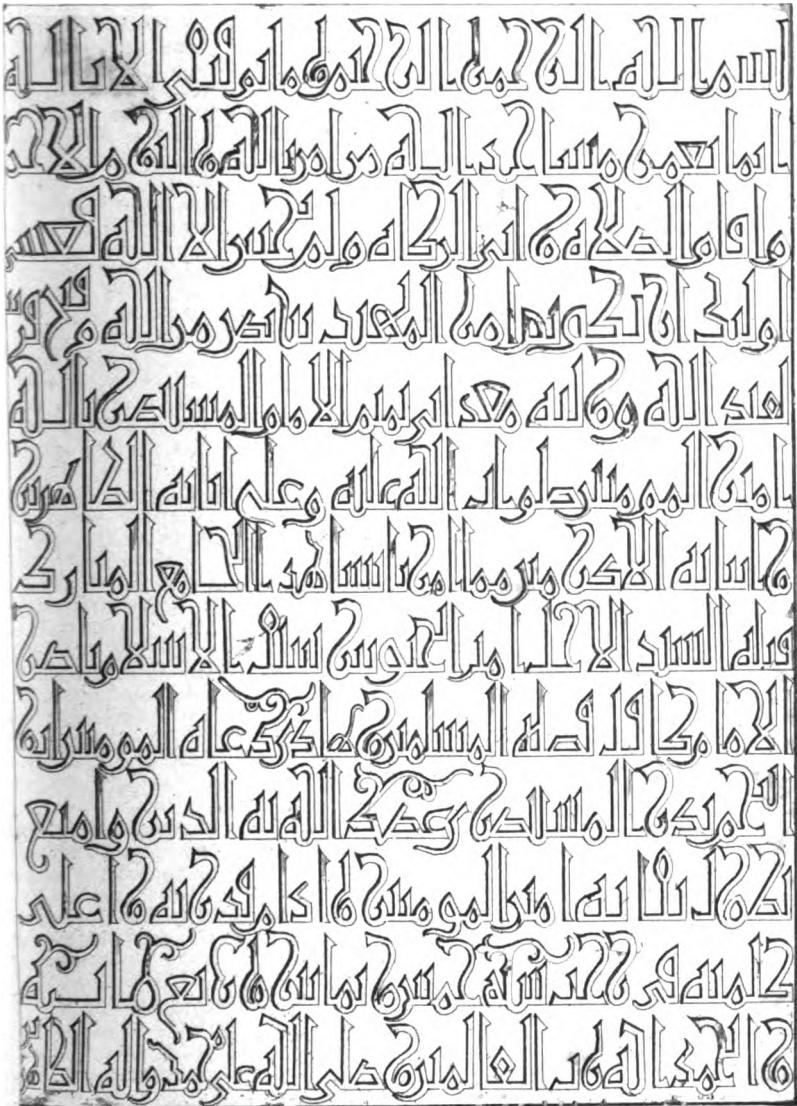 بسم الله الرحمن الرحيم وما توفيقي إلا بالله
إنما يعمر مساجد الله من آمن بالله واليوم الآخر
وأقام الصلاة وآتى الزكاة ولم يخش إلا الله فعسى
أولئك أن يكونوا من المهتدين نصر من الله وفتح قريب
لعبد الله ووليه معد أبي تميم الإمام المستنصر بالله
أمير المؤمنين صلوات الله عليه وعلى آبائه الطاهرين
وأبنائه الأكرمين مما أمر بإنشاء هذا الجامع المبارك
فتاه السيد الأجل أمير الجيوش سيف الإسلام ناصر
الإمام كافل قضاة المسلمين وهادي دعاة المؤمنين أبو
النجم بدر المستنصري عضد الله به الدين وأمتع
بطول بقائه أمير المؤمنين وأدام قدرته وأعلى
كلمته في سنة وأربع مائة
والحمد لله رب العالمين وصلى الله على محمد وآله الطاهرين